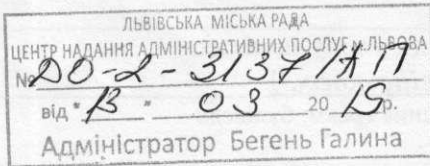 ЛЬВІВСЬКА МІСЬКА РАДА
ЦЕНТР НАДАННЯ АДМІНІСТРАТИВНИХ ПОСЛУГ м.ЛЬВОВА
№ ДО-2-3137/АП
від " 13 " 03 20 19р.
Адміністратор Бегень Галина